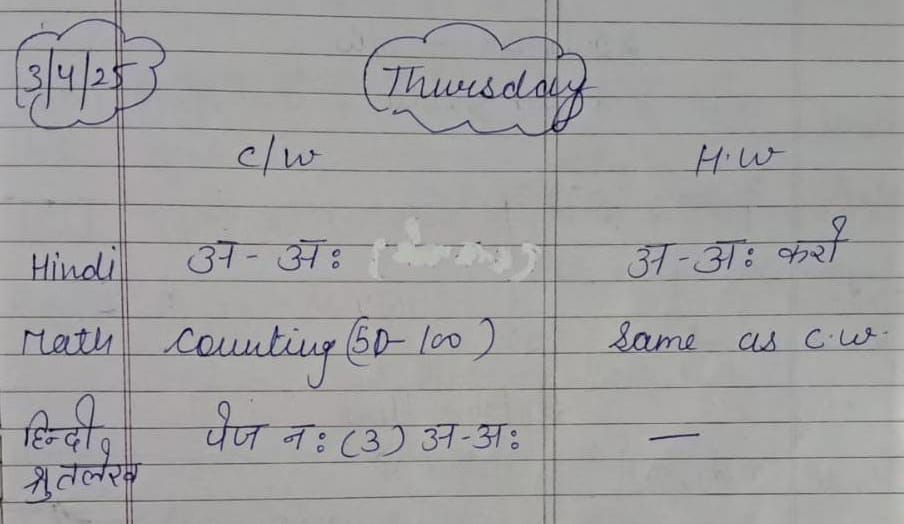 3/4/25 Thursday
C/W H.W
Hindi अ - अः अ - अः करो
Math Counting (50-100) Same as C.W.
हिन्दी पेज नः (3) अ-अः —
श्रुतलेख